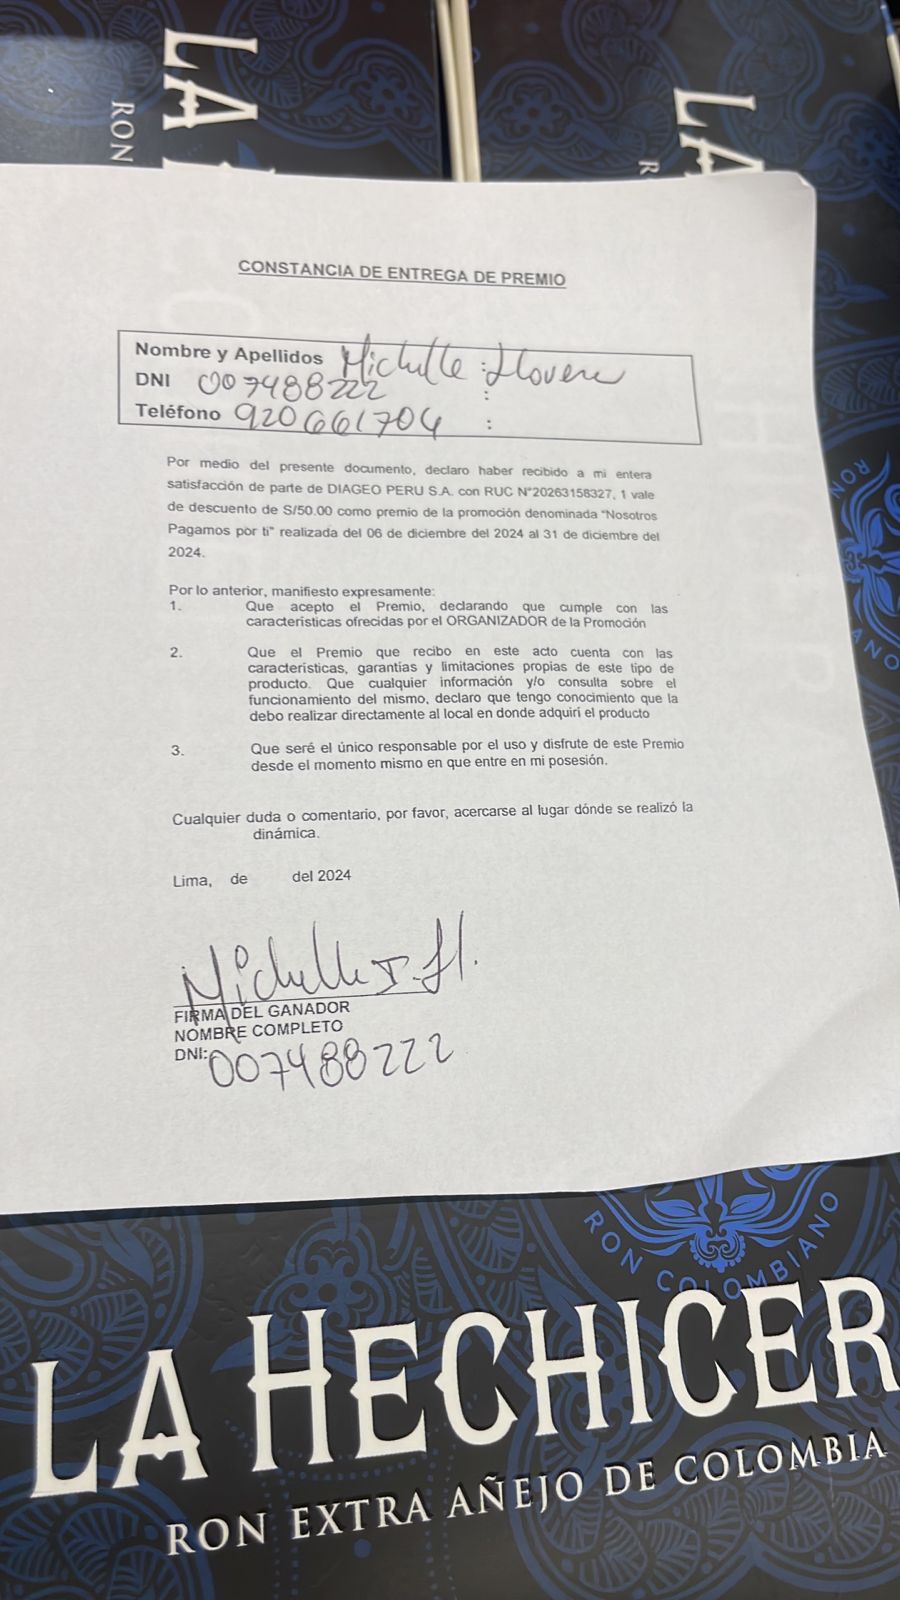 LA
RON
LA
R
CONSTANCIA DE ENTREGA DE PREMIO
Nombre y Apellidos Michelle :
DNI 007488222 :
Teléfono 920661704 :
Por medio del presente documento, declaro haber recibido a mi entera
satisfacción de parte de DIAGEO PERU S.A. con RUC N°20263158327, 1 vale
de descuento de S/50.00 como premio de la promoción denominada "Nosotros
Pagamos por ti" realizada del 06 de diciembre del 2024 al 31 de diciembre del
2024.
Por lo anterior, manifiesto expresamente:
1. Que acepto el Premio, declarando que cumple con las
características ofrecidas por el ORGANIZADOR de la Promoción
2. Que el Premio que recibo en este acto cuenta con las
características, garantías y limitaciones propias de este tipo de
producto. Que cualquier información y/o consulta sobre el
funcionamiento del mismo, declaro que tengo conocimiento que la
debo realizar directamente al local en donde adquirí el producto
3. Que seré el único responsable por el uso y disfrute de este Premio
desde el momento mismo en que entre en mi posesión.
Cualquier duda o comentario, por favor, acercarse al lugar dónde se realizó la
dinámica.
Lima, de del 2024
Michelle
FIRMA DEL GANADOR
NOMBRE COMPLETO
DNI: 007488222
RON
ANO
RON COLOMBIANO
LA HECHICER
RON EXTRA AÑEJO DE COLOMBIA